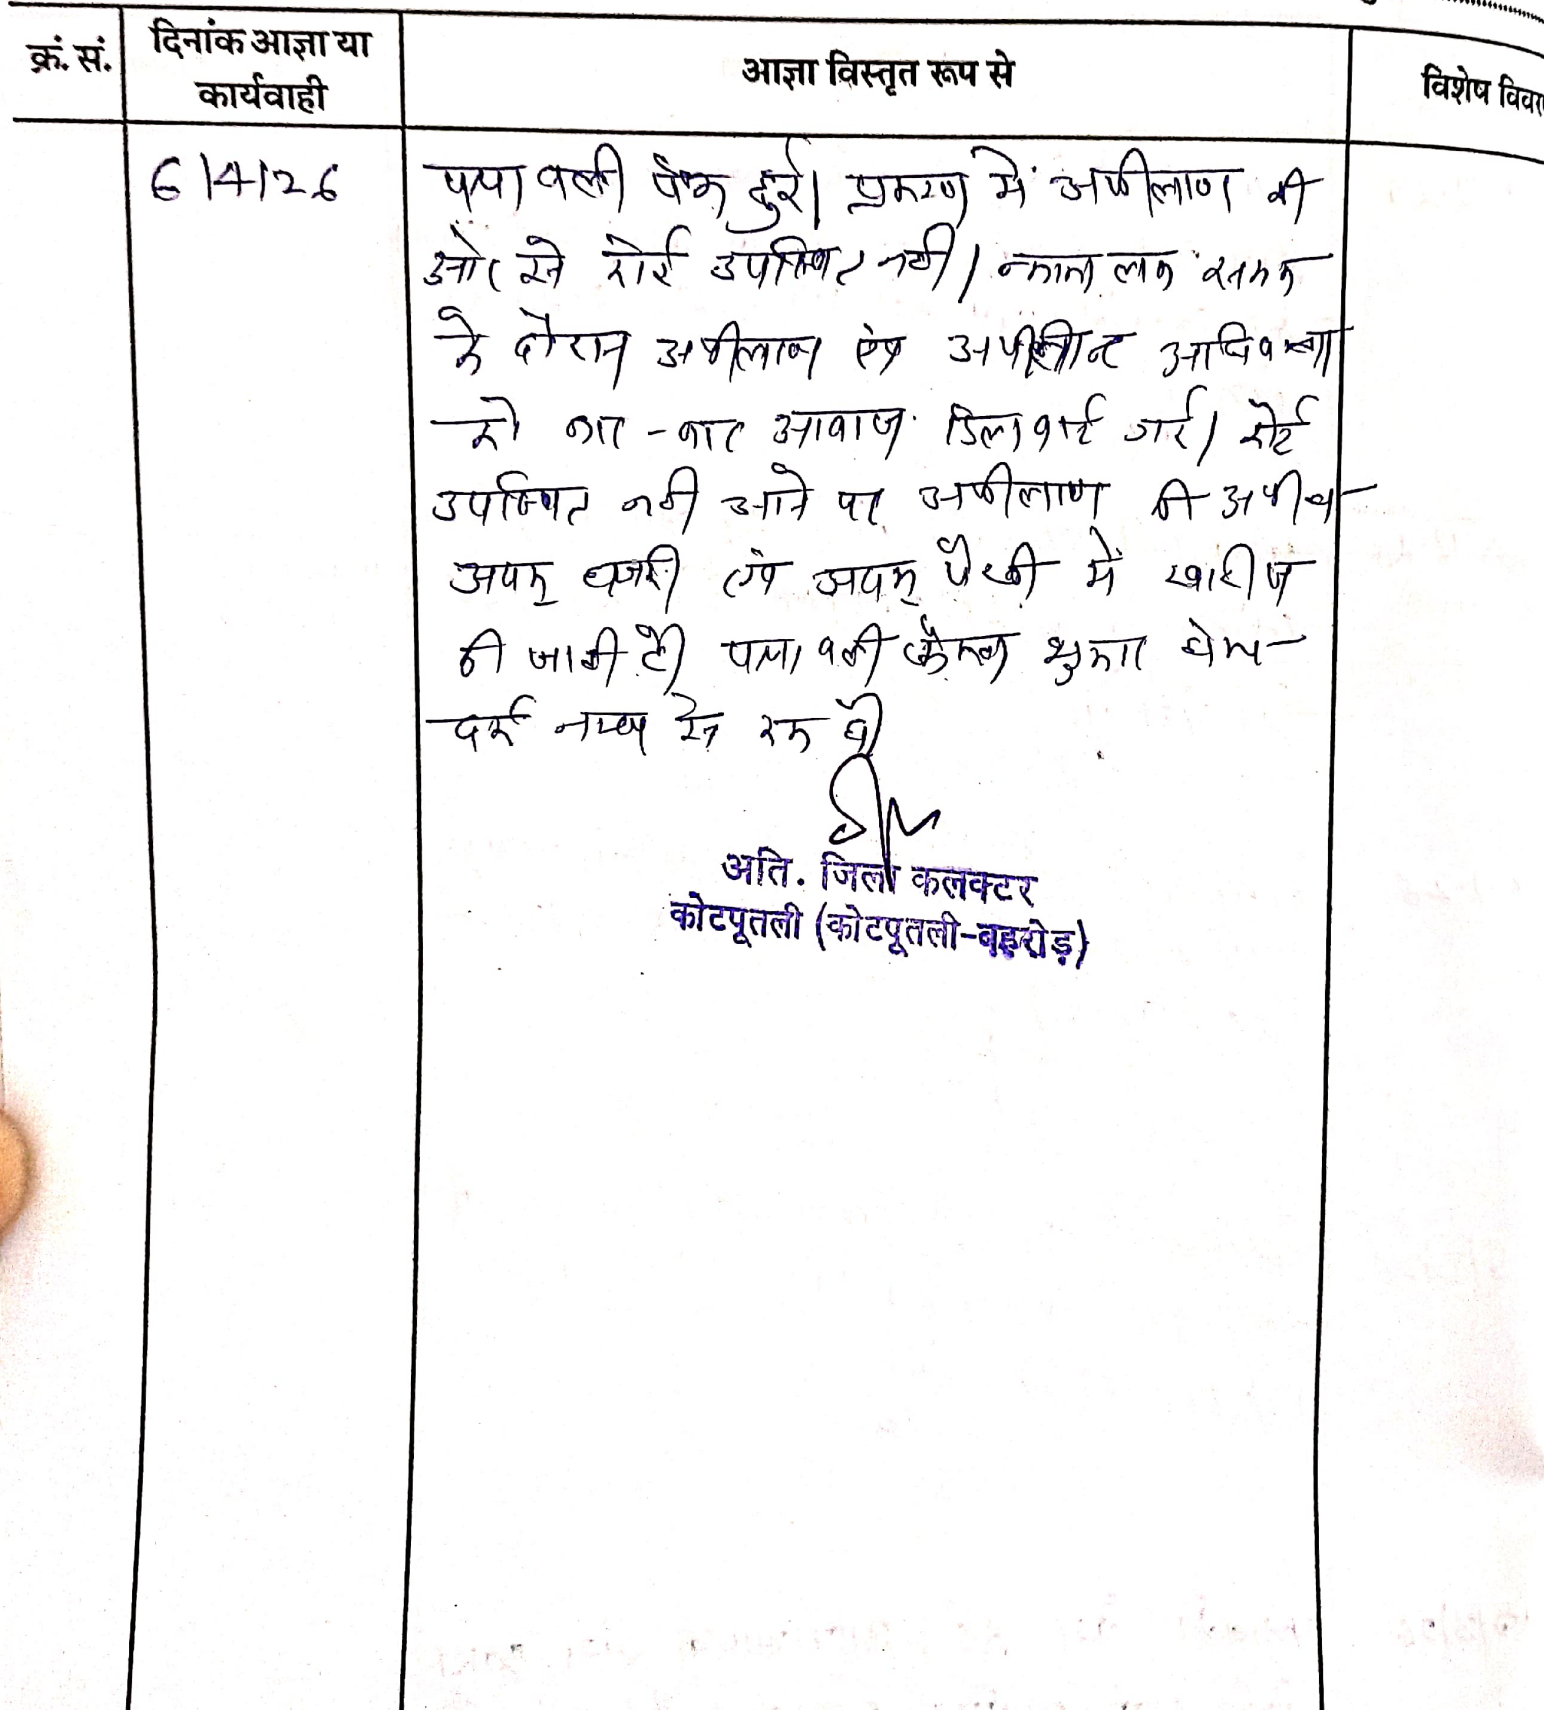 क्रं. सं.
दिनांक आज्ञा या
कार्यवाही
आज्ञा विस्तृत रूप से
विशेष विवरण
6/4/26
पत्रावली पेश हुई। प्रकरण में अपीलाण्ट की
ओर से कोई उपस्थित नहीं। न्यायालय समय
के दौरान अपीलाण्ट एंव अपीलान्ट अधिवक्ता
को बार-बार आवाज दिलवाई गई। कोई
उपस्थित नहीं आने पर अपीलाण्ट की अपील
अदम हाजरी एंव अदम पैरवी में खारीज
की जाती है। पत्रावली फैसल शुमार होकर
दर्ज नम्बर से कम हो
अति. जिला कलक्टर
कोटपूतली (कोटपूतली-बहरोड़)